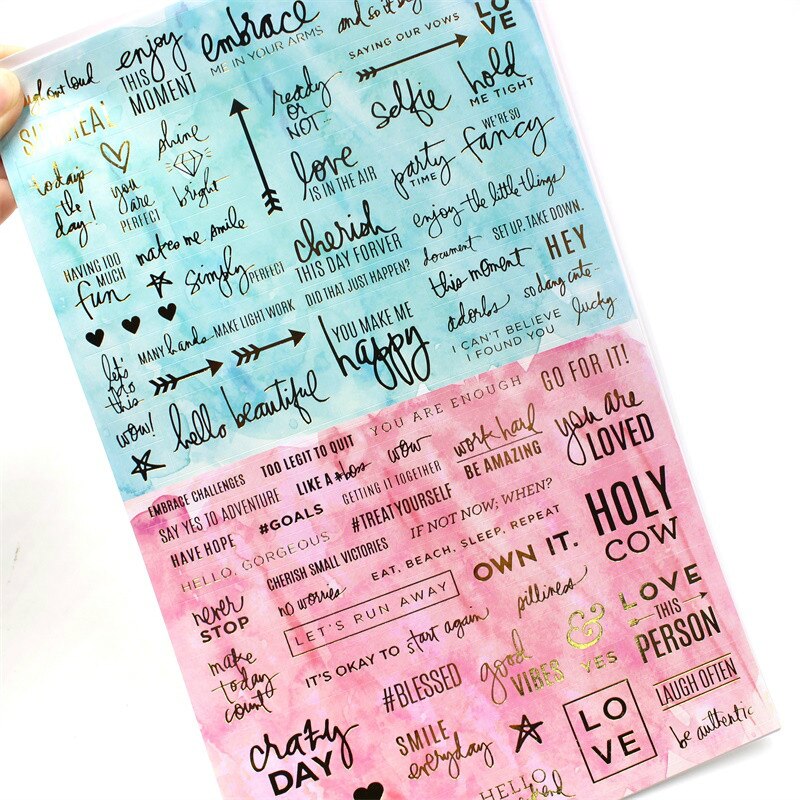 enjoy
THIS
MOMENT
embrace
ME IN YOUR ARMS
and so it
SAYING OUR VOWS
LO
VE
out loud
ready
OR
NOT
selfie
hold
ME TIGHT
shine
bright
today's
the
day!
you
are
PERFECT
love
IS IN THE AIR
party
TIME
WE'RE SO
fancy
makes me smile
cherish
THIS DAY FORVER
enjoy the little things
HAVING TOO
MUCH
fun
simply PERFECT
DID THAT JUST HAPPEN?
document
SET UP. TAKE DOWN.
this moment
HEY
MANY hands MAKE LIGHT WORK
YOU MAKE ME
happy
adorbs
so dang cute
I CAN'T BELIEVE
I FOUND YOU
lucky
let's
do
this
wow!
hello beautiful
YOU ARE ENOUGH
GO FOR IT!
EMBRACE CHALLENGES
TOO LEGIT TO QUIT
wow
work hard
BE AMAZING
you are
LOVED
SAY YES TO ADVENTURE
LIKE A #boss
GETTING IT TOGETHER
HAVE HOPE
#GOALS
#TREATYOURSELF
IF NOT NOW, WHEN?
HOLY
COW
HELLO, GORGEOUS
CHERISH SMALL VICTORIES
EAT, BEACH, SLEEP, REPEAT
OWN IT.
never
STOP
no worries
LET'S RUN AWAY
silliness
&
LOVE
THIS
PERSON
make
today
count
IT'S OKAY TO start again
good
VIBES
YES
#BLESSED
LAUGH OFTEN
crazy
DAY
SMILE
everyday
LO
VE
be authentic
HELLO